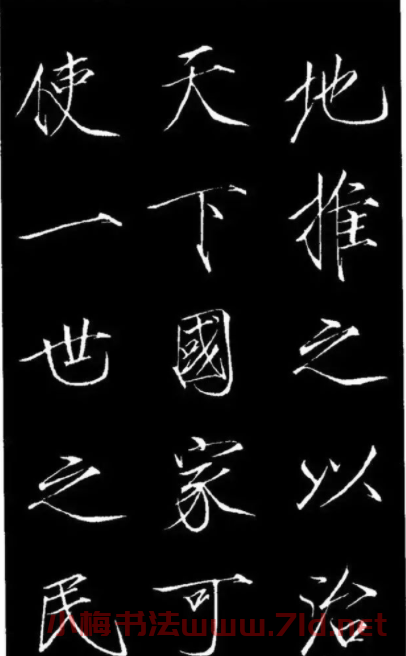 地推之以治
天下國家可
使一世之民
小梅书法www.7ld.net